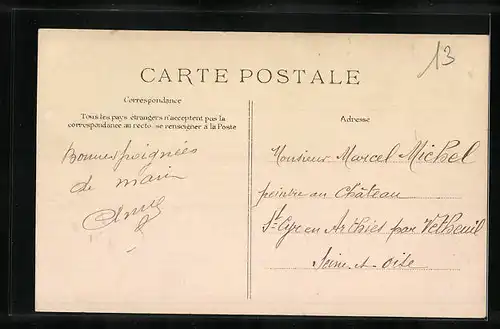 13
CARTE POSTALE
Correspondance
Tous les pays étrangers n'acceptent pas la
correspondance au recto, se renseigner à la Poste
Bonnes poignées
de main
Adresse
Monsieur Marcel Michel
peintre au Château
St Cyr en Arthies par Vetheuil
Seine-et-Oise